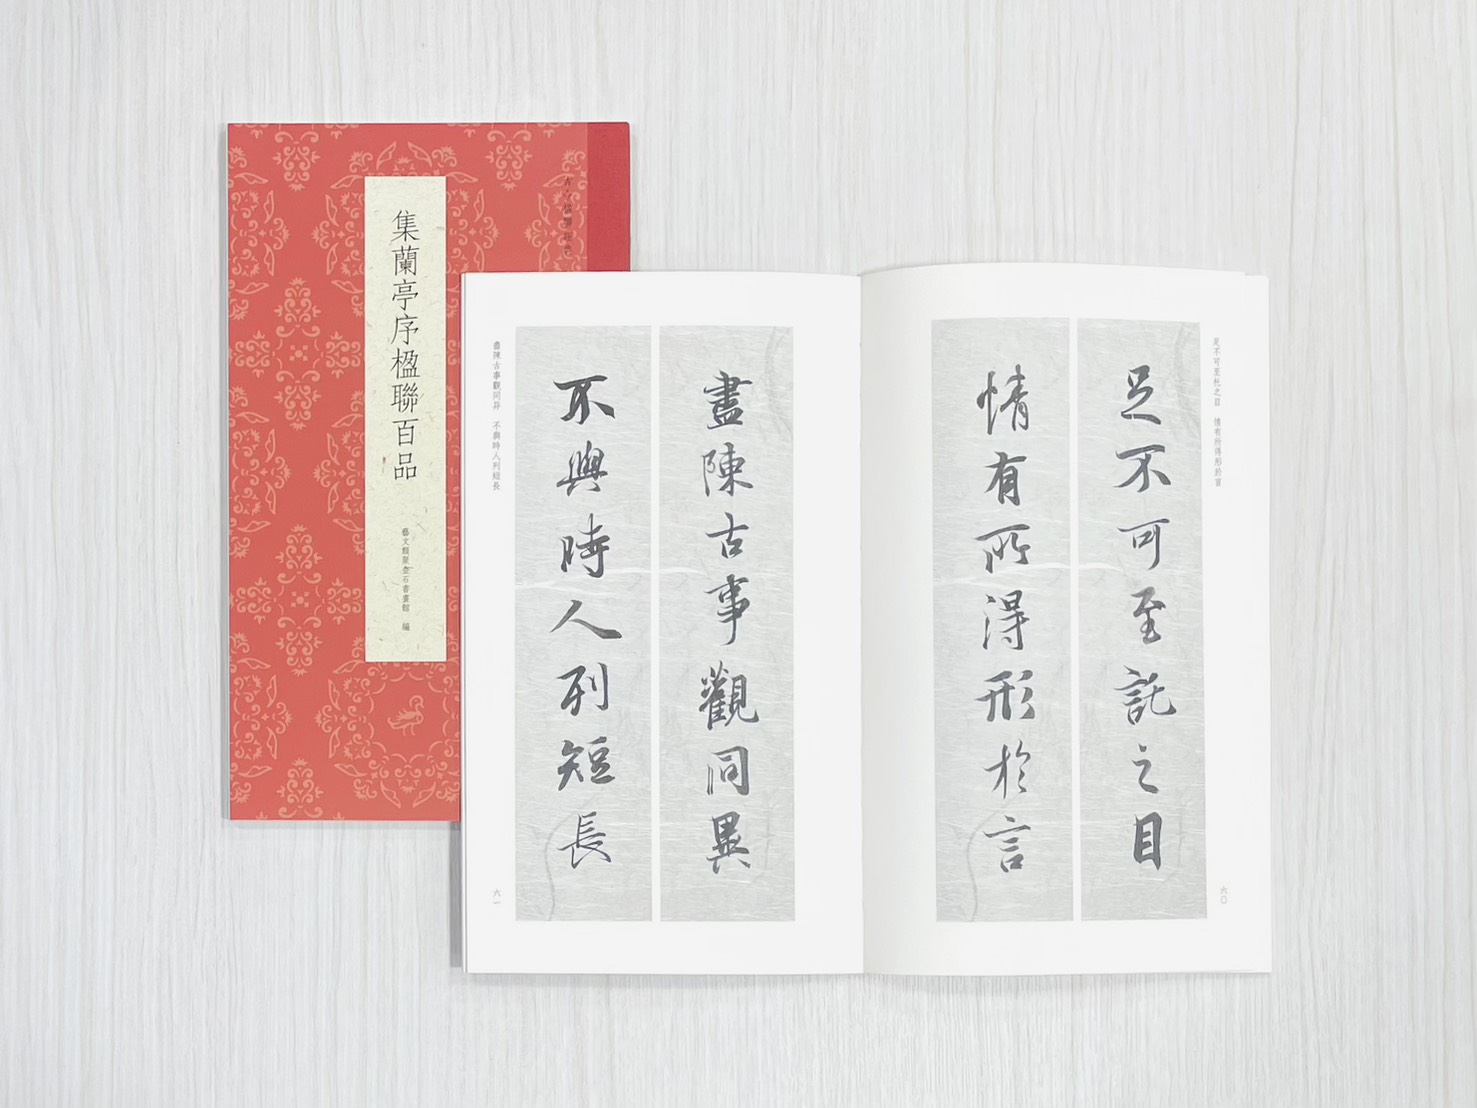 集蘭亭序楹聯百品
藝文類聚金石書畫館 編
足不可至托之目 情有所得形於言
足不可至託之目
情有所得形於言
六〇
盡陳古事觀同異
不與時人列短長
盡陳古事觀同异 不與時人列短長
六一